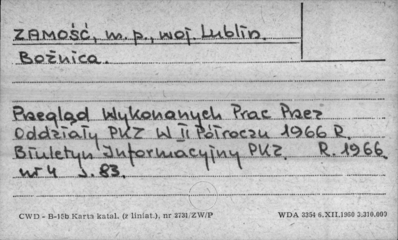 ZAMOŚĆ, m.p., woj. Lublin.
Bożnica.
Przegląd Wykonanych Prac Przez
Oddziały PKZ W II Półroczu 1966 R.
Biuletyn Informacyjny PKZ. R. 1966.
nr 4 s. 83.
CWD - B-15b Karta katal. (z liniat.), nr 3731/ZW/P WDA 3354 6.XII.1960 3.310.000